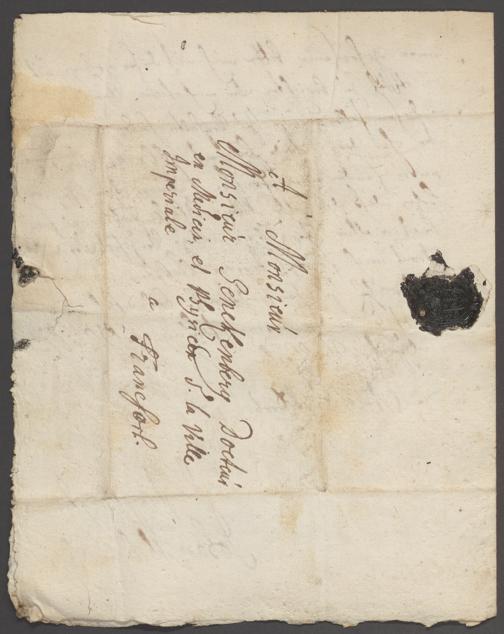 A Monsieur
Monsieur Senckenberg Docteur
en Medicin, et Physicien d. la Ville
Imperiale
a Francfort.